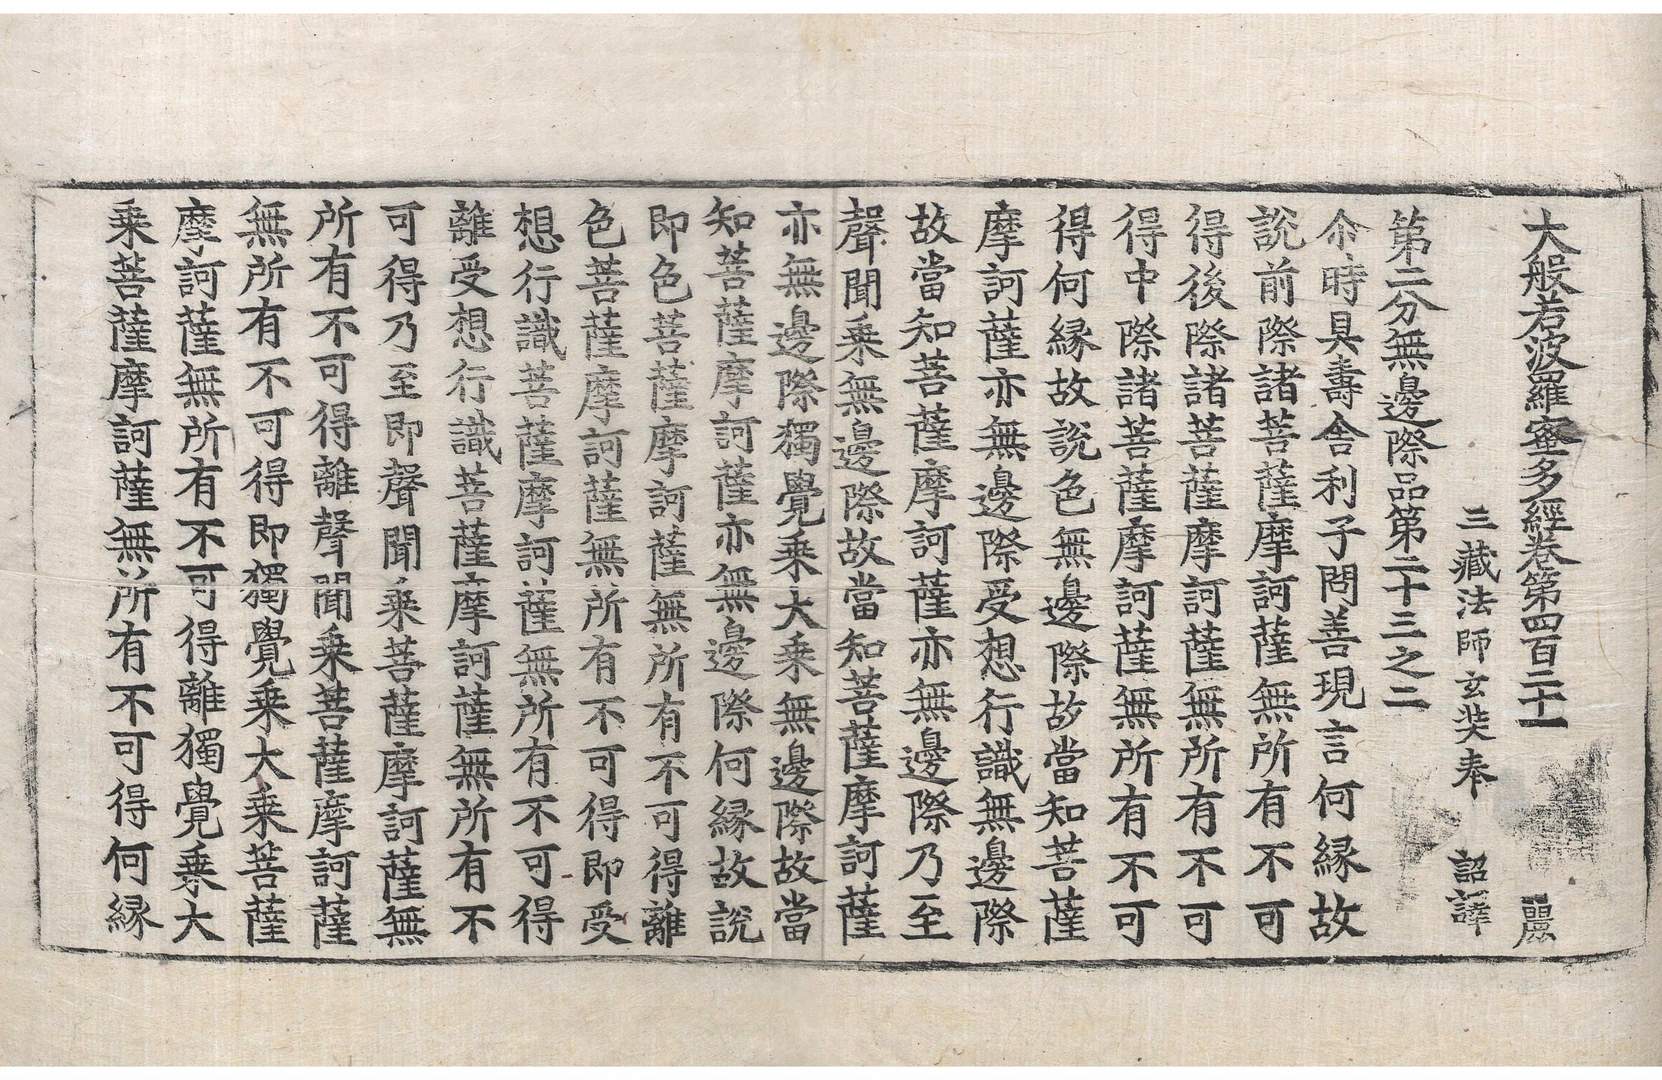 大般若波羅蜜多經卷第四百二十一 麗
三藏法師玄奘奉 詔譯
第二分無邊際品第二十三之二
尒時具壽舍利子問善現言何縁故
說前際諸菩薩摩訶薩無所有不可
得後際諸菩薩摩訶薩無所有不可
得中際諸菩薩摩訶薩無所有不可
得何縁故說色無邊際故當知菩薩
摩訶薩亦無邊際受想行識無邊際
故當知菩薩摩訶薩亦無邊際乃至
聲聞乗無邊際故當知菩薩摩訶薩
亦無邊際獨覺乗大乗無邊際故當
知菩薩摩訶薩亦無邊際何縁故說
即色菩薩摩訶薩無所有不可得離
色菩薩摩訶薩無所有不可得即受
想行識菩薩摩訶薩無所有不可得
離受想行識菩薩摩訶薩無所有不
可得乃至即聲聞乗菩薩摩訶薩無
所有不可得離聲聞乗菩薩摩訶薩
無所有不可得即獨覺乗大乗菩薩
摩訶薩無所有不可得離獨覺乗大
乗菩薩摩訶薩無所有不可得何縁